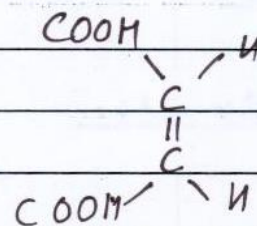 COOH H
C
||
C
COOH H